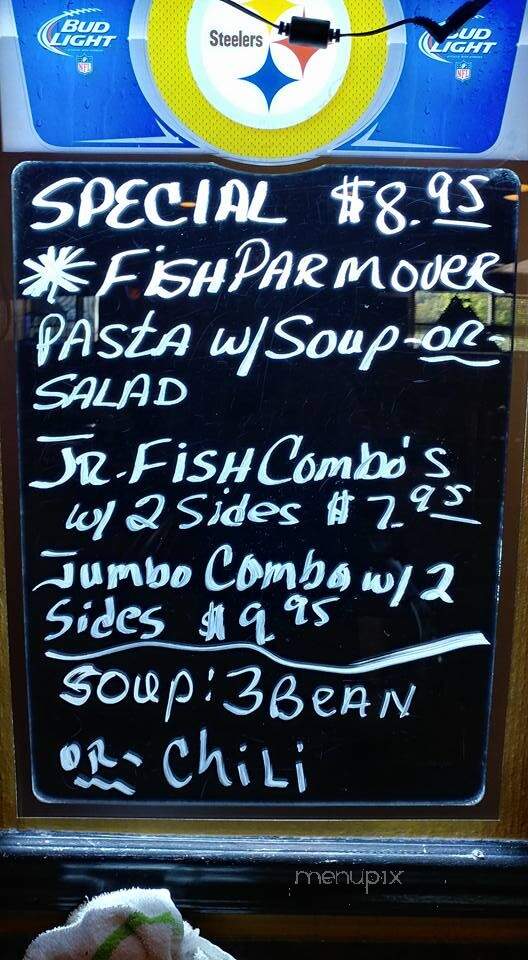 BUD LIGHT
NFL
Steelers
BUD LIGHT
NFL
SPECIAL $8.95
* FISH PARM OVER
PASTA w/ Soup -OR-
SALAD
JR. FISH Combo's
w/ 2 Sides $7.95
Jumbo Combo w/ 2
Sides $9.95
SOUP: 3 BEAN
OR- CHiLi
menupix